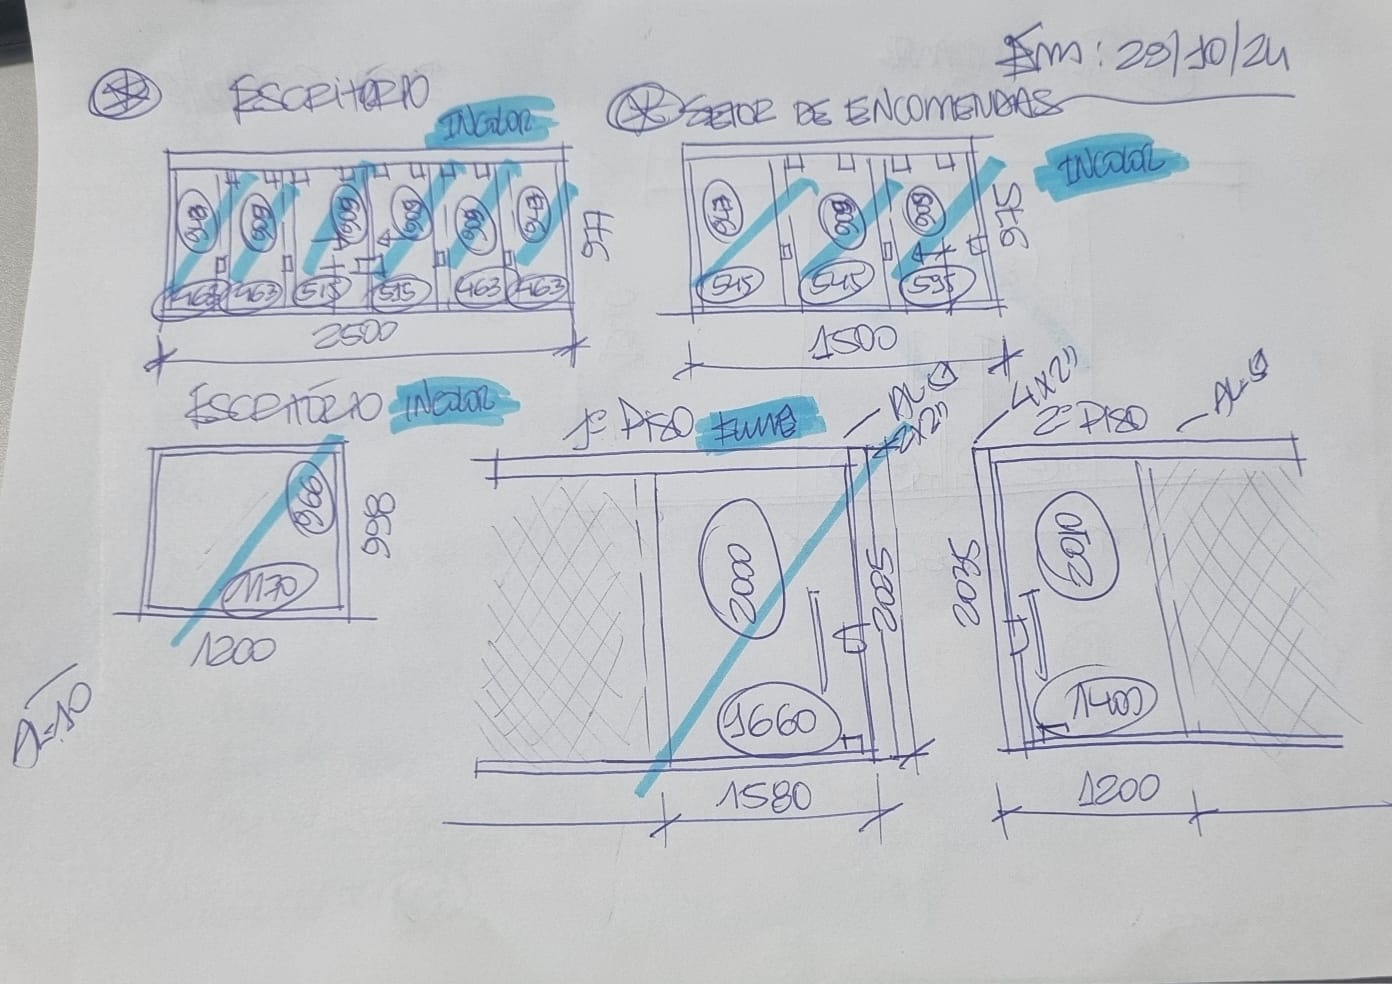 Em: 29/10/24
ESCRITÓRIO
INCOLOR
947 909 909 909 909 947
463 463 515 515 463 463
977
2500
SETOR DE ENCOMENDAS
INCOLOR
947 909 909
545 545 595
975
1500
ESCRITÓRIO INCOLOR
960
1170
998
1200
1º PISO FUMÊ
2x2"
2000
1660
2005
1580
4x2"
2º PISO
2010
1400
2025
1200